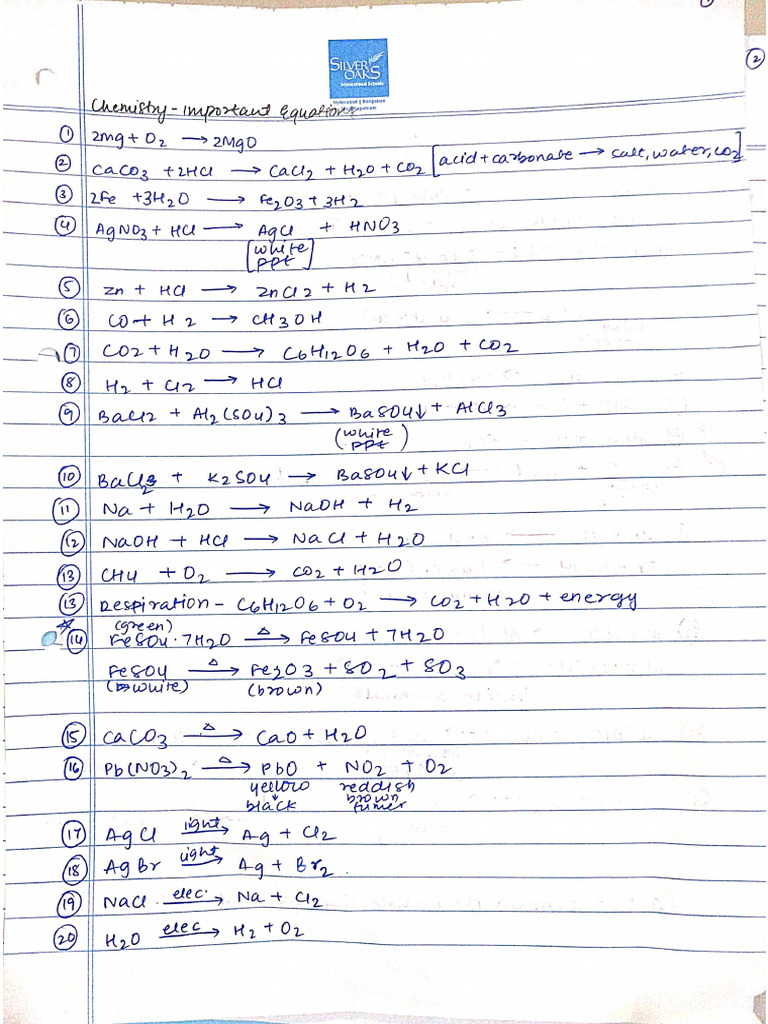 2
SILVER
OAKS
International Schools
Hyderabad | Bangalore
Chemistry - Important Equations
① 2Mg + O2 → 2MgO
② CaCO3 + 2HCl → CaCl2 + H2O + CO2 [acid + carbonate → salt, water, CO2]
③ 2Fe + 3H2O → Fe2O3 + 3H2
④ AgNO3 + HCl → AgCl + HNO3
[white
ppt]
⑤ Zn + HCl → ZnCl2 + H2
⑥ CO + H2 → CH3OH
⑦ CO2 + H2O → C6H12O6 + H2O + CO2
⑧ H2 + Cl2 → HCl
⑨ BaCl2 + Al2(SO4)3 → BaSO4↓ + AlCl3
(white
ppt)
⑩ BaCl2 + K2SO4 → BaSO4↓ + KCl
⑪ Na + H2O → NaOH + H2
⑫ NaOH + HCl → NaCl + H2O
⑬ CH4 + O2 → CO2 + H2O
⑬ Respiration - C6H12O6 + O2 → CO2 + H2O + energy
(green)
⑭ FeSO4·7H2O —△→ FeSO4 + 7H2O
FeSO4 —△→ Fe2O3 + SO2 + SO3
(white) (brown)
⑮ CaCO3 —△→ CaO + H2O
⑯ Pb(NO3)2 —△→ PbO + NO2 + O2
yellow reddish
↓ brown
black fumes
⑰ AgCl —light→ Ag + Cl2
⑱ AgBr —light→ Ag + Br2
⑲ NaCl —elec.→ Na + Cl2
⑳ H2O —elec→ H2 + O2